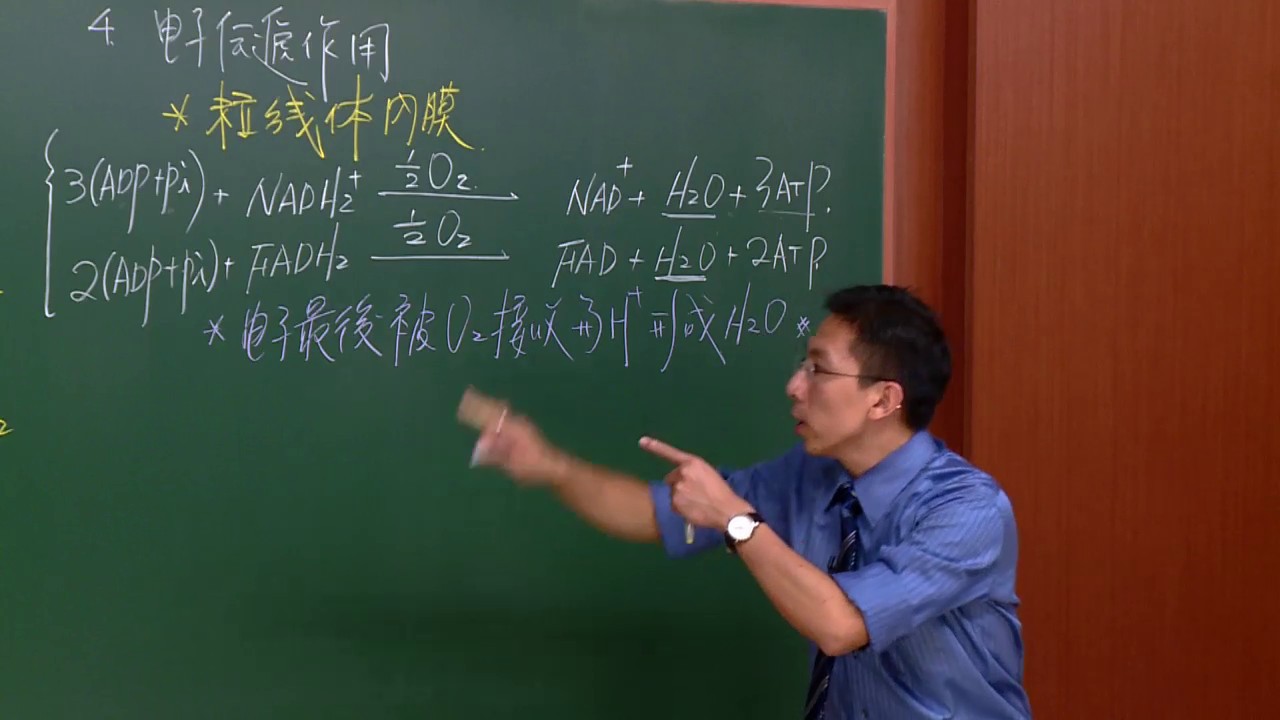 4. 电子传遞作用
* 粒线体内膜
3(ADP+Pi) + NADH₂⁺ ½O₂ → NAD⁺ + H₂O + 3ATP.
2(ADP+Pi) + FADH₂ ½O₂ → FAD + H₂O + 2ATP.
* 电子最後被O₂接收再与H⁺形成H₂O *
2